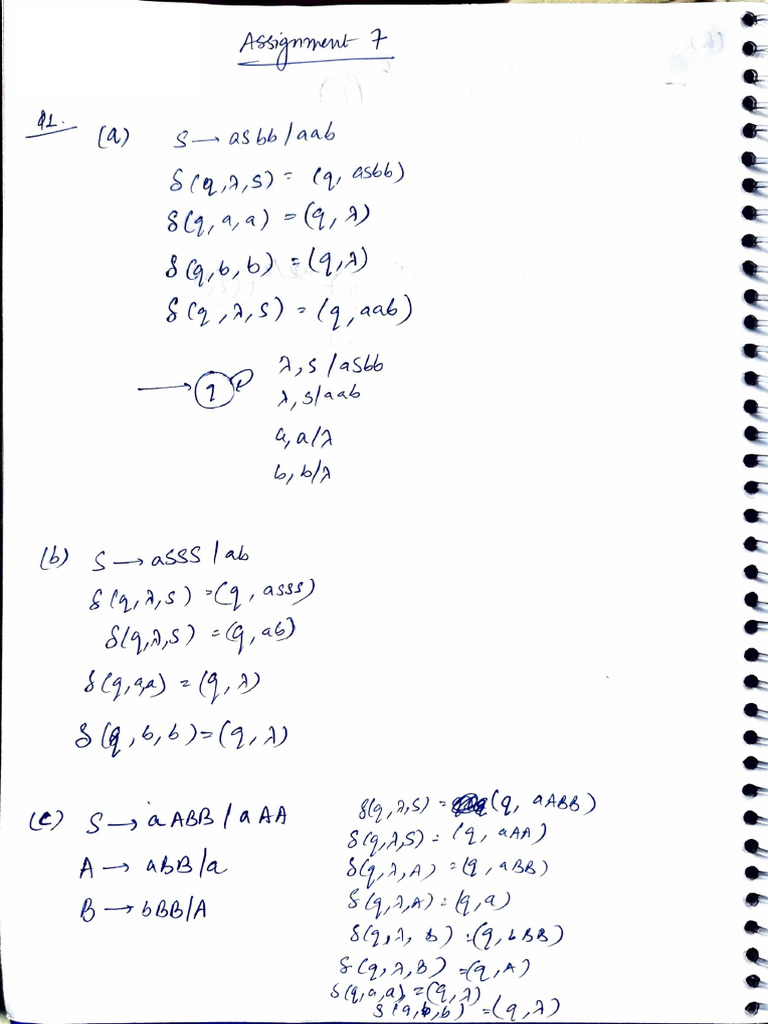 Assignment 7
Q1.
(a) S → aSbb/aab
δ(q,λ,S) = (q, aSbb)
δ(q, a, a) = (q, λ)
δ(q, b, b) = (q, λ)
δ(q, λ, S) = (q, aab)
q
λ, S/aSbb
λ, S/aab
a, a/λ
b, b/λ
(b) S → aSSS / ab
δ(q,λ,S) = (q, aSSS)
δ(q,λ,S) = (q, ab)
δ(q,a,a) = (q, λ)
δ(q, b, b) = (q, λ)
(c) S → aABB / aAA
A → aBB/a
B → bBB/A
δ(q,λ,S) = (q, aABB)
δ(q,λ,S) = (q, aAA)
δ(q,λ,A) = (q, aBB)
δ(q,λ,A) = (q,a)
δ(q,λ,B) = (q,bBB)
δ(q,λ,B) = (q,A)
δ(q,a,a) = (q,λ)
δ(q,b,b) = (q,λ)